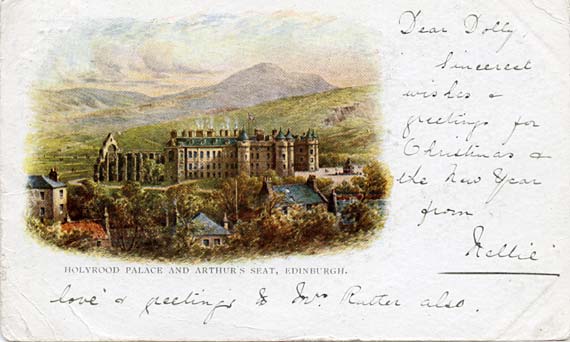 Dear Dolly,
Sincerest
wishes &
greetings for
Christmas &
the New Year
from
Nellie
HOLYROOD PALACE AND ARTHUR'S SEAT, EDINBURGH.
love & greetings to Mrs Rutter also.